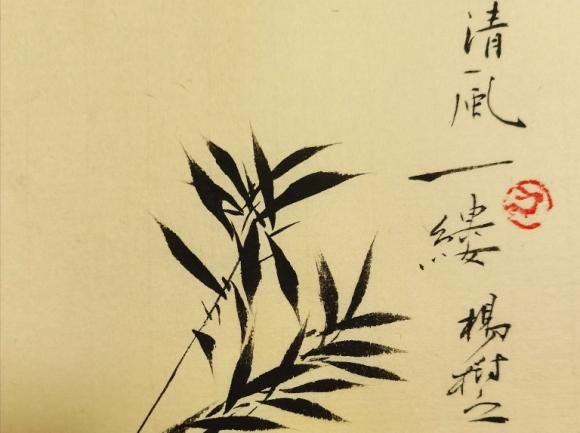 清風一縷 楊樹